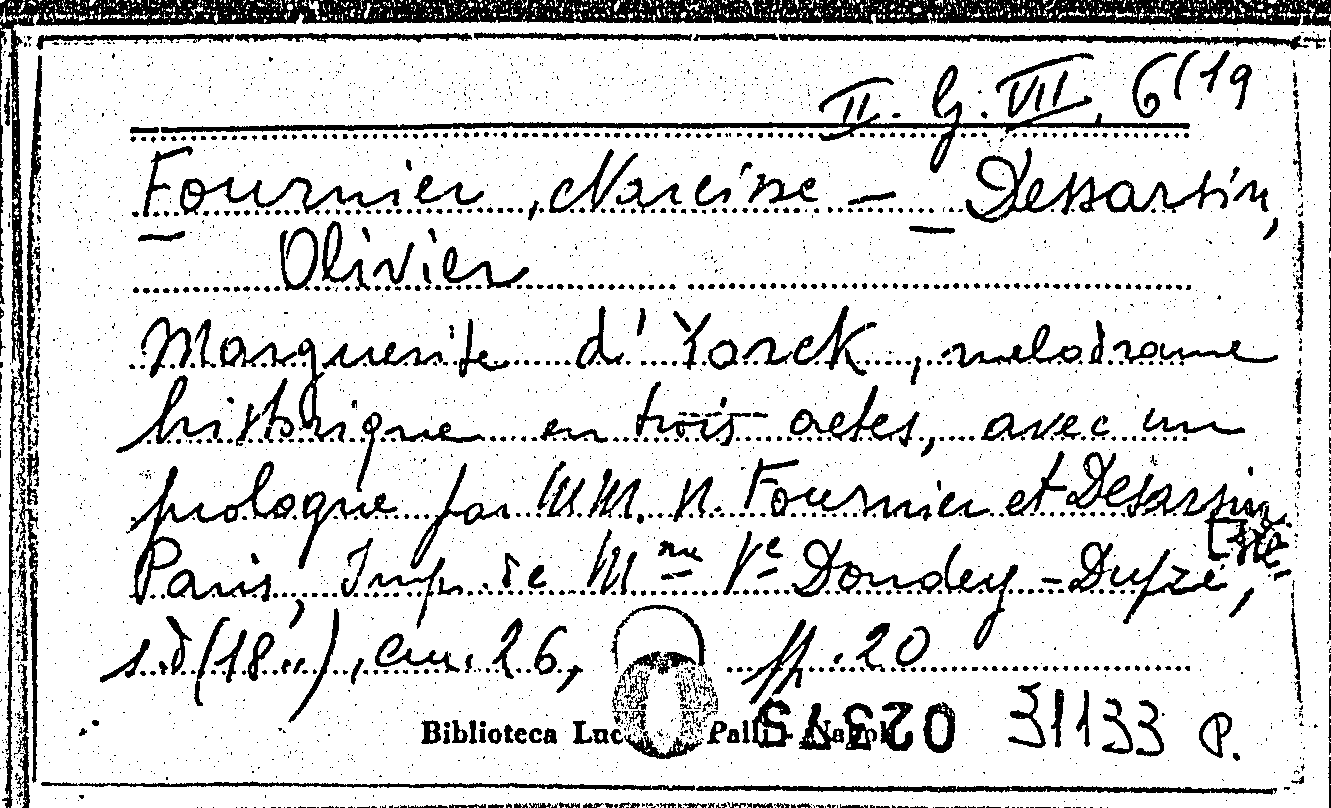 II. G. VII, 6(19
Fournier, Narcisse – Dessarsin,
Olivier
Marguerite d'Yorck, melodrame
historique en trois actes, avec un
prologue par MM. N. Fournier et Desarsin
Paris, Imp. de Mme Ve Dondey-Dupré,
s.d (18..), cm. 26, pp. 20
Biblioteca Lucchesi Palli - Napoli
31133 P.